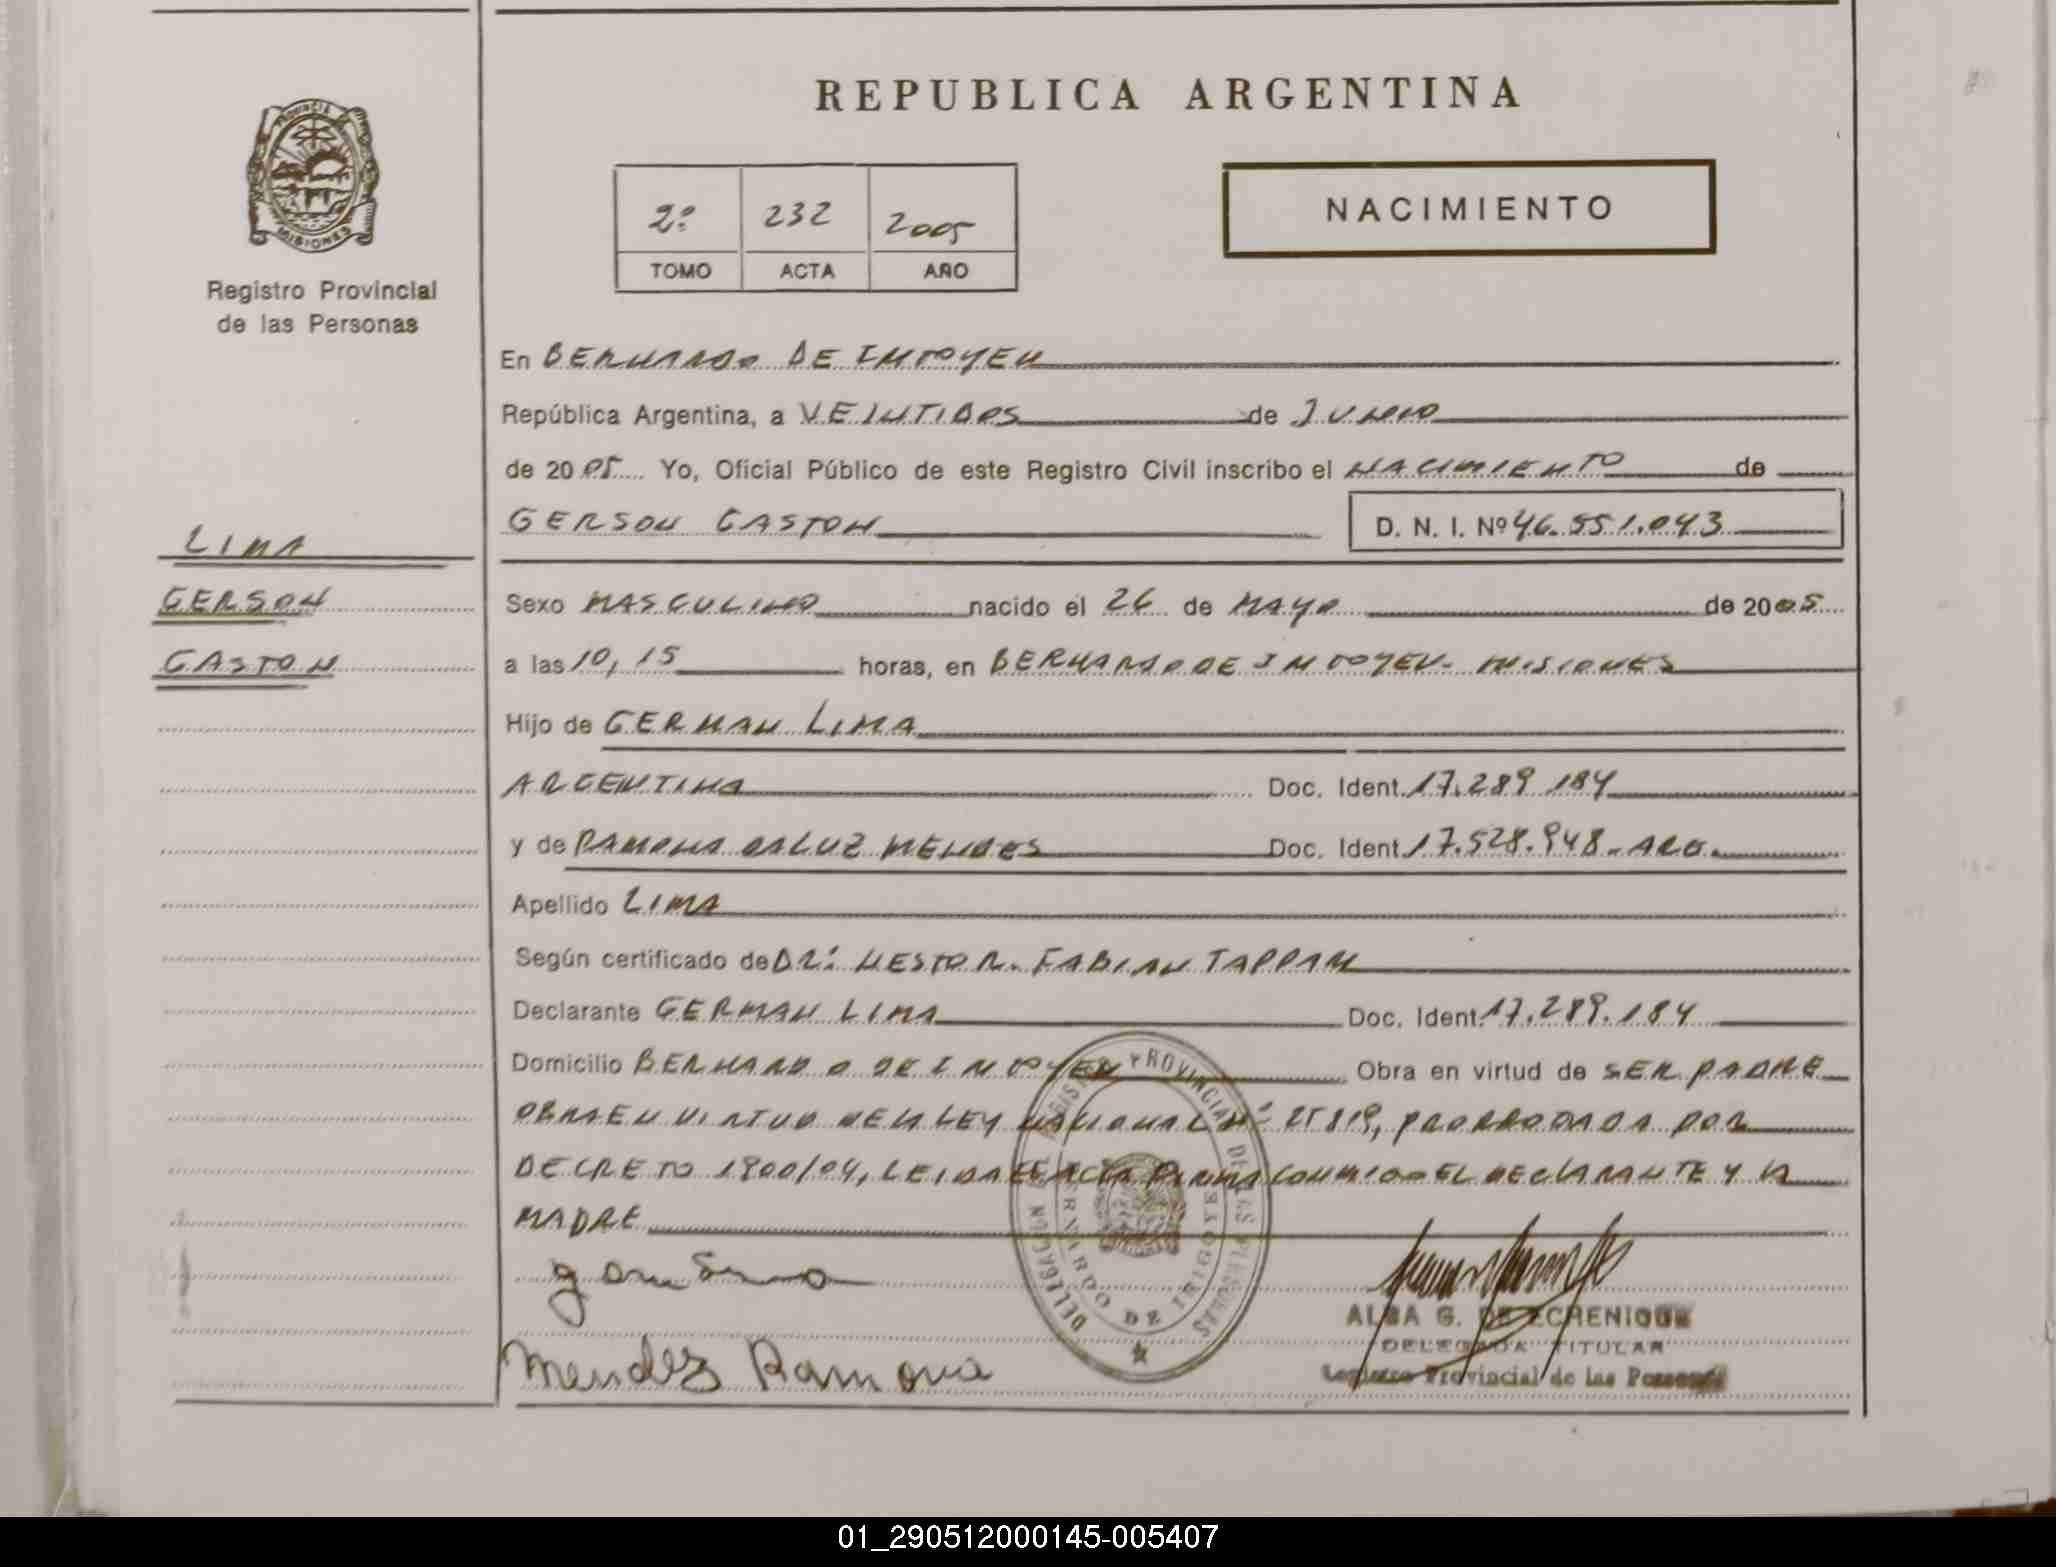 REPUBLICA ARGENTINA
PROVINCIA DE MISIONES
Registro Provincial
de las Personas
2º 232 2005
TOMO ACTA AÑO
NACIMIENTO
En BERNARDO DE IRIGOYEN
República Argentina, a VEINTIDOS de JUNIO
de 2005 Yo, Oficial Público de este Registro Civil inscribo el NACIMIENTO de
GERSON GASTON D. N. I. Nº 46.551.043
LIMA
GERSON
GASTON
Sexo MASCULINO nacido el 26 de MAYO de 2005
a las 10,15 horas, en BERNARDO DE IRIGOYEN- MISIONES
Hijo de GERMAN LIMA
ARGENTINA Doc. Ident. 17.289.184
y de RAMONA DALUZ MENDES Doc. Ident. 17.528.948- ARG.
Apellido LIMA
Según certificado de DR: NESTOR. FABIAN TAPPARI
Declarante GERMAN LIMA Doc. Ident. 17.289.184
Domicilio BERNARDO DE IRIGOYEN Obra en virtud de SER PADRE
OBRA EN VIRTUD DE LA LEY NACIONAL Nº 25819, PRORROGADA POR
DECRETO 1900/04, LEIDA EL ACTA FIRMA CONMIGO EL DECLARANTE Y LA
MADRE
Mendez Ramona
DELEGACION DEL REGISTRO PROVINCIAL DE LAS PERSONAS
BERNARDO DE IRIGOYEN
ALBA G. DE ECHENIQUE
DELEGADA TITULAR
Registro Provincial de las Personas
01_290512000145-005407